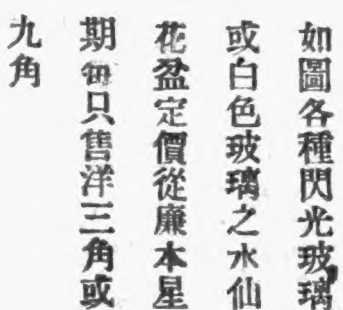 如圖各種閃光玻璃
或白色玻璃之水仙
花盆定價從廉本星
期每只售洋三角或
九角